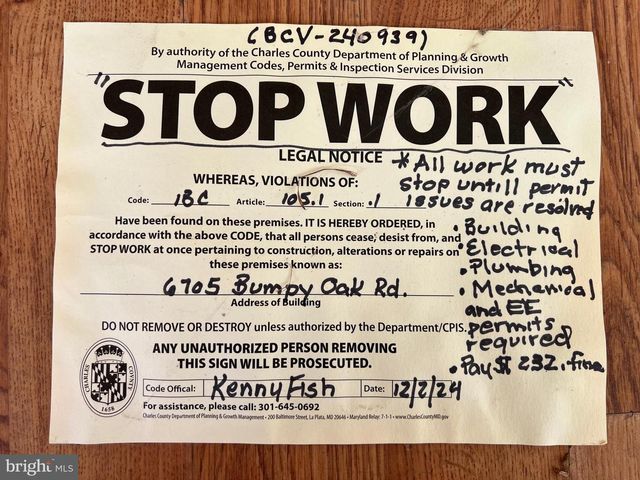 (BCV-240939)
By authority of the Charles County Department of Planning & Growth
Management Codes, Permits & Inspection Services Division
"STOP WORK"
LEGAL NOTICE
* All work must
stop untill permit
issues are resolved
• Building
• Electrical
• Plumbing
• Mechanical
and EE
permits
required
• Pay $ 232. fine
WHEREAS, VIOLATIONS OF:
Code: IBC Article: 105.1 Section: .1
Have been found on these premises. IT IS HEREBY ORDERED, in
accordance with the above CODE, that all persons cease, desist from, and
STOP WORK at once pertaining to construction, alterations or repairs on
these premises known as:
6705 Bumpy Oak Rd.
Address of Building
DO NOT REMOVE OR DESTROY unless authorized by the Department/CPIS.
ANY UNAUTHORIZED PERSON REMOVING
THIS SIGN WILL BE PROSECUTED.
CHARLES COUNTY
1658
Code Offical: Kenny Fish Date: 12/2/24
For assistance, please call: 301-645-0692
Charles County Department of Planning & Growth Management • 200 Baltimore Street, La Plata, MD 20646 • Maryland Relay: 7-1-1 • www.CharlesCountyMD.gov
bright MLS